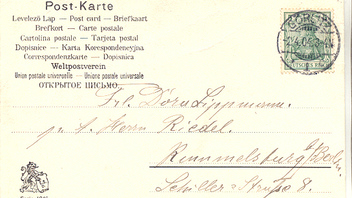 Post-Karte
Levelező Lap — Post card — Briefkaart
Brefkort — Carte postale
Cartolina postale — Tarjeta postal
Dopisnice — Karta Korespondencyjna
Correspondenzkarte — Dopisnica
Weltpostverein
Union postale universelle — Unione postale universale
ОТКРЫТОЕ ПИСЬМО
Frl. Dora Lippmann
Herrn Riedel.
Rummelsburg b/Berlin.
Schiller-Straße 8.